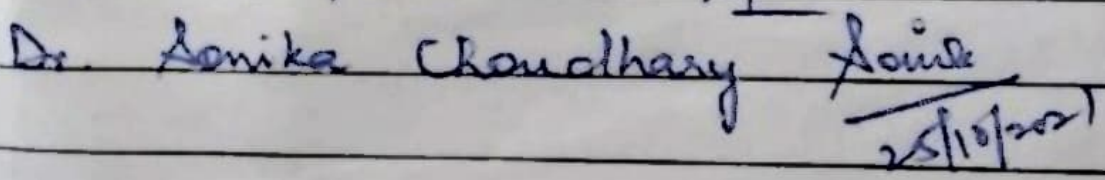 Dr. Sonika Choudhary Sonik
25/10/2021